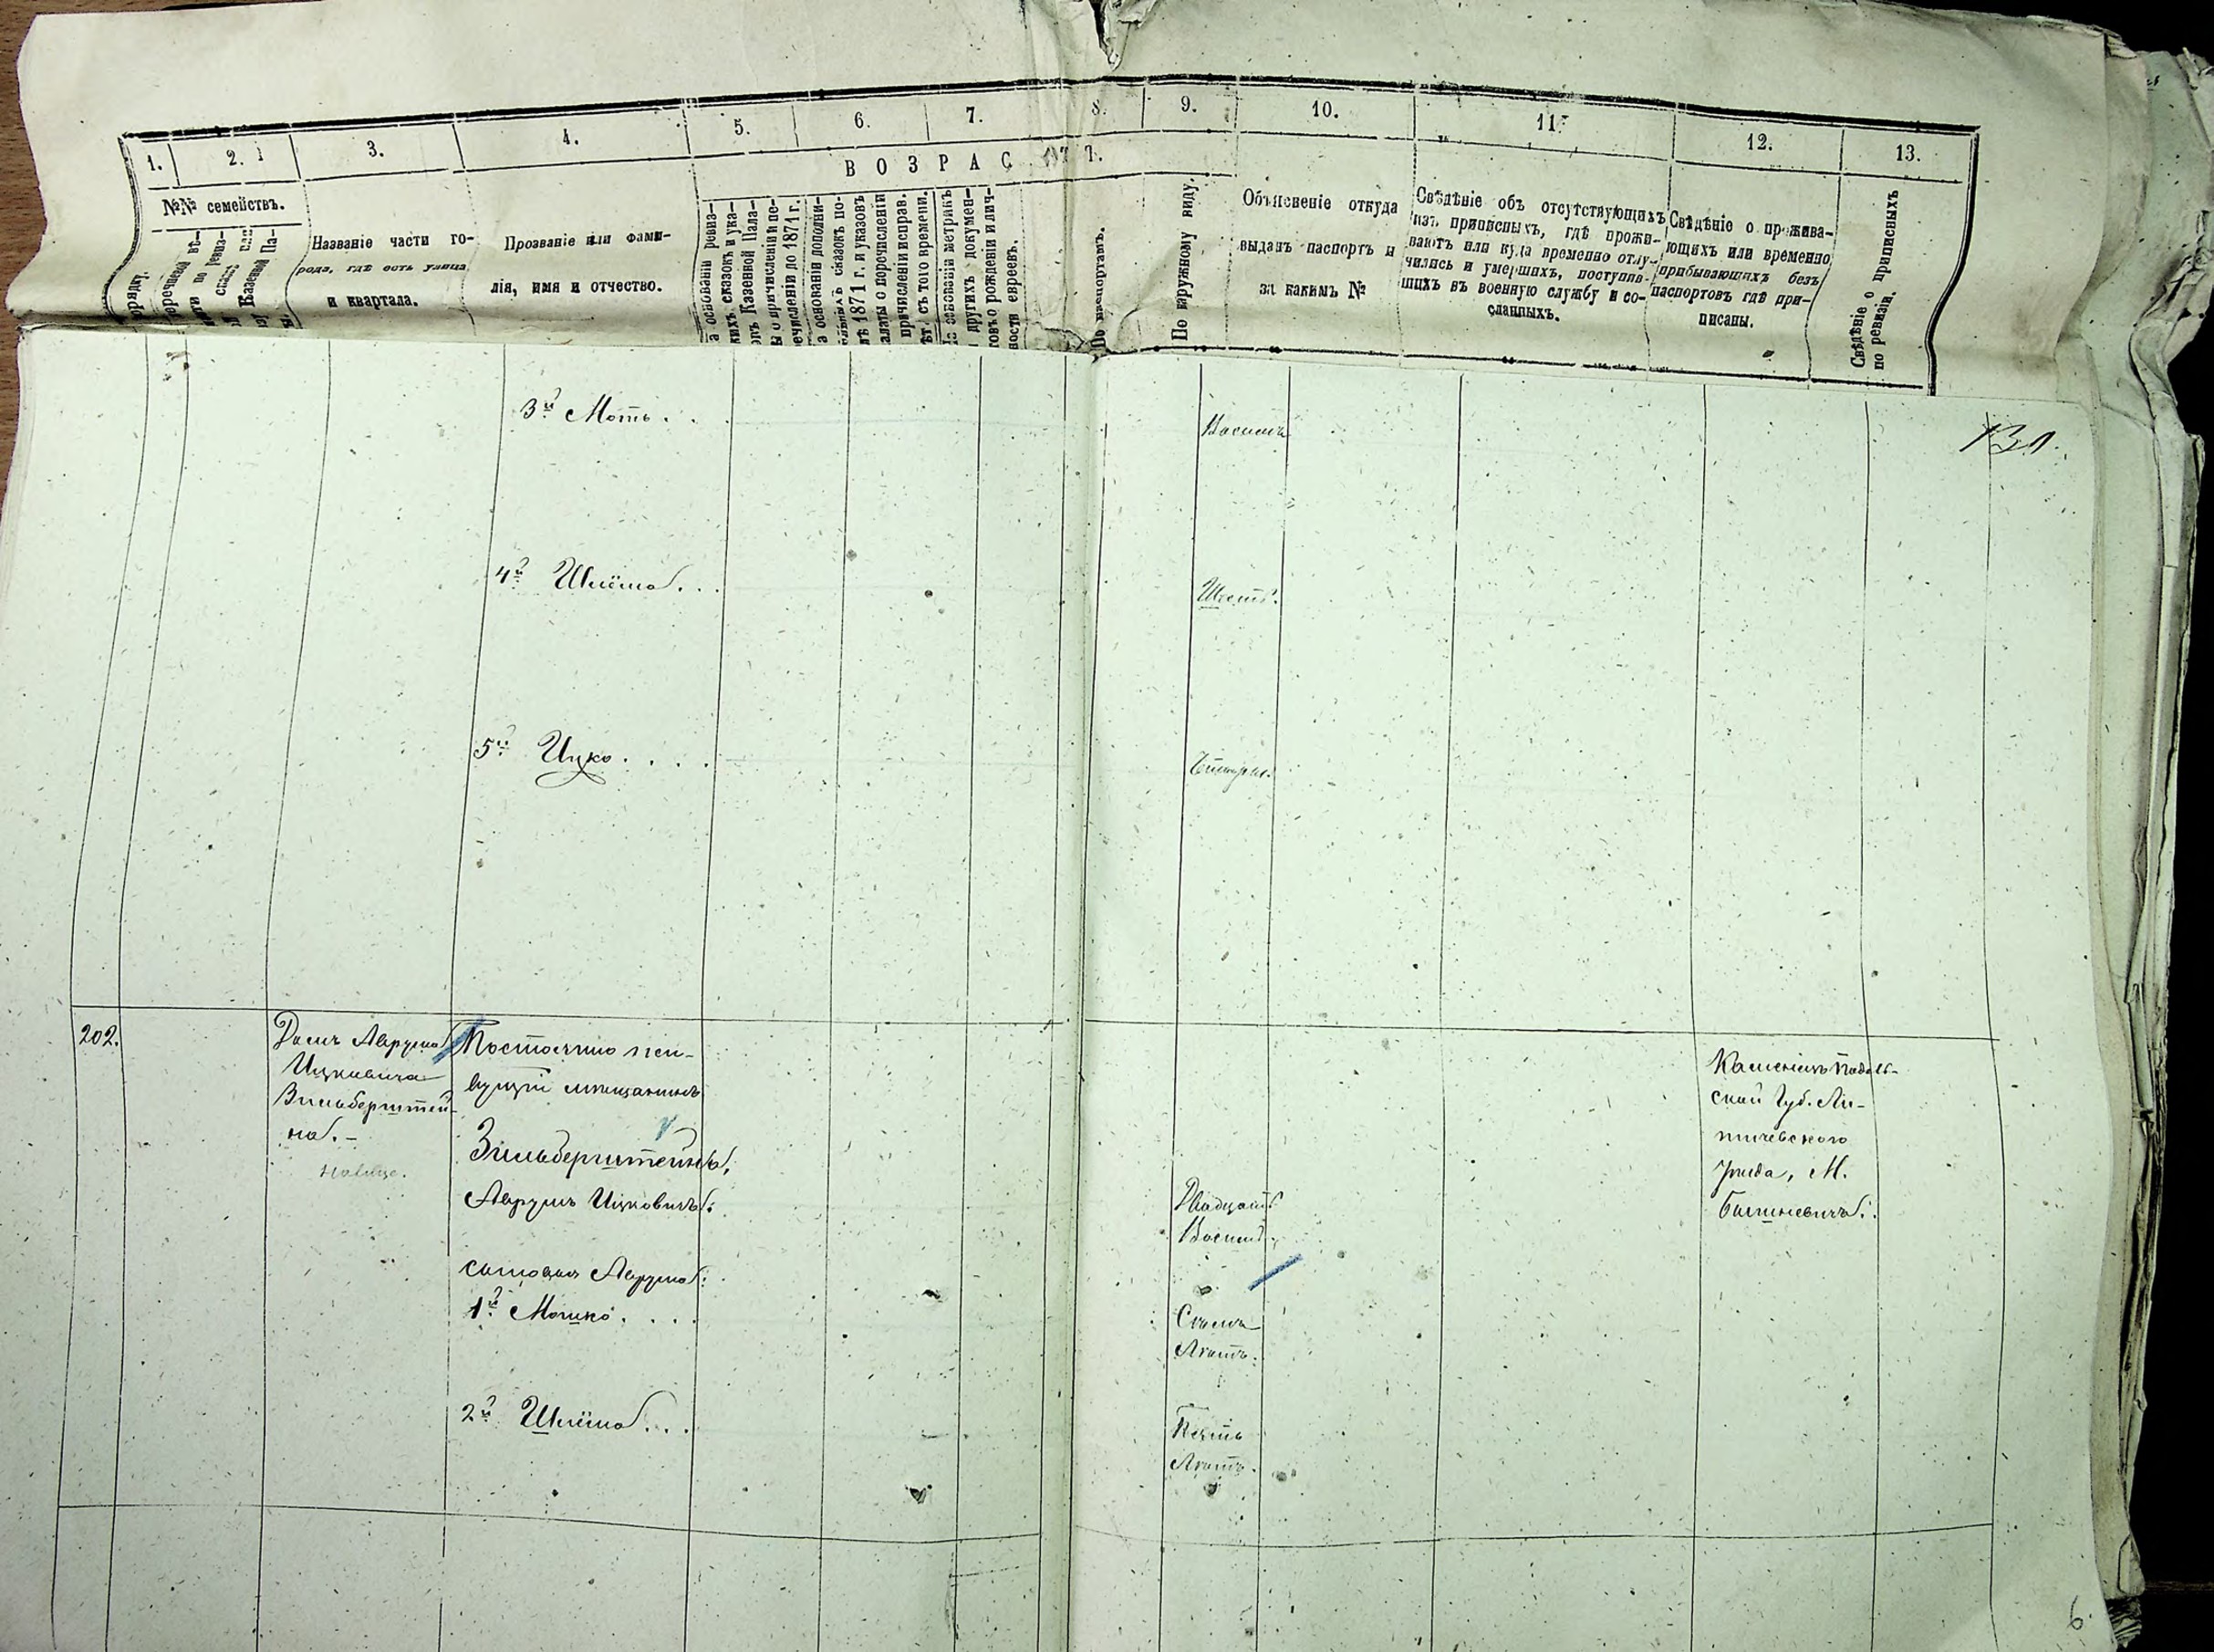 1. 2. 3. 4. 5. 6. 7. 8. 9. 10. 11. 12. 13.
ВОЗРАСТ
№№ семействъ.
Названіе части го-
рода, гдѣ есть улица
и квартала.
Прозваніе или фами-
лія, имя и отчество.
а основаніи ревиз-
кихъ сказокъ и ука-
Казенной Пала-
ы о причисленіи и пе-
ечисленіи до 1871 г.
а основаніи дополни-
сказокъ по-
лѣ 1871 г. и указовъ
алаты о перечисленіи
причисленіи исправ.
ѣт. съ того времени.
основаніи метрикъ
другихъ докумен-
товъ о рожденіи и лич-
ности евреевъ.
По паспортамъ.
По наружному виду.
Объясненіе откуда
выданъ паспортъ и
за какимъ №
Свѣдѣніе объ отсутствующихъ
изъ приписныхъ, гдѣ прожи-
ваютъ или куда временно отлу-
чились и умершихъ, поступив-
шихъ въ военную службу и со-
сланныхъ.
Свѣдѣніе о прожива-
ющихъ или временно
прибывающихъ безъ
паспортовъ гдѣ при-
писаны.
Свѣдѣніе о приписныхъ
по ревизіи.
3й Мотъ . .
Восемь
4й Шлёма . . .
Шесть.
5й Ицко . . . .
Четыре.
202.
Домъ Аврума
Ицковича
Зильберштей-
на. -
Постоянно жи-
вущій мѣщанинъ
Зильберштейнъ,
Аврумъ Ицковичъ.
Двадцать
Восемь.
сыновья Аврума:
1й Мошко . . . .
Семь
Лѣтъ.
2й Шлёма . . .
Пять
Лѣтъ.
Каменецъ Подоль-
ской Губ. Ли-
тичевского
Уѣзда, М.
6.